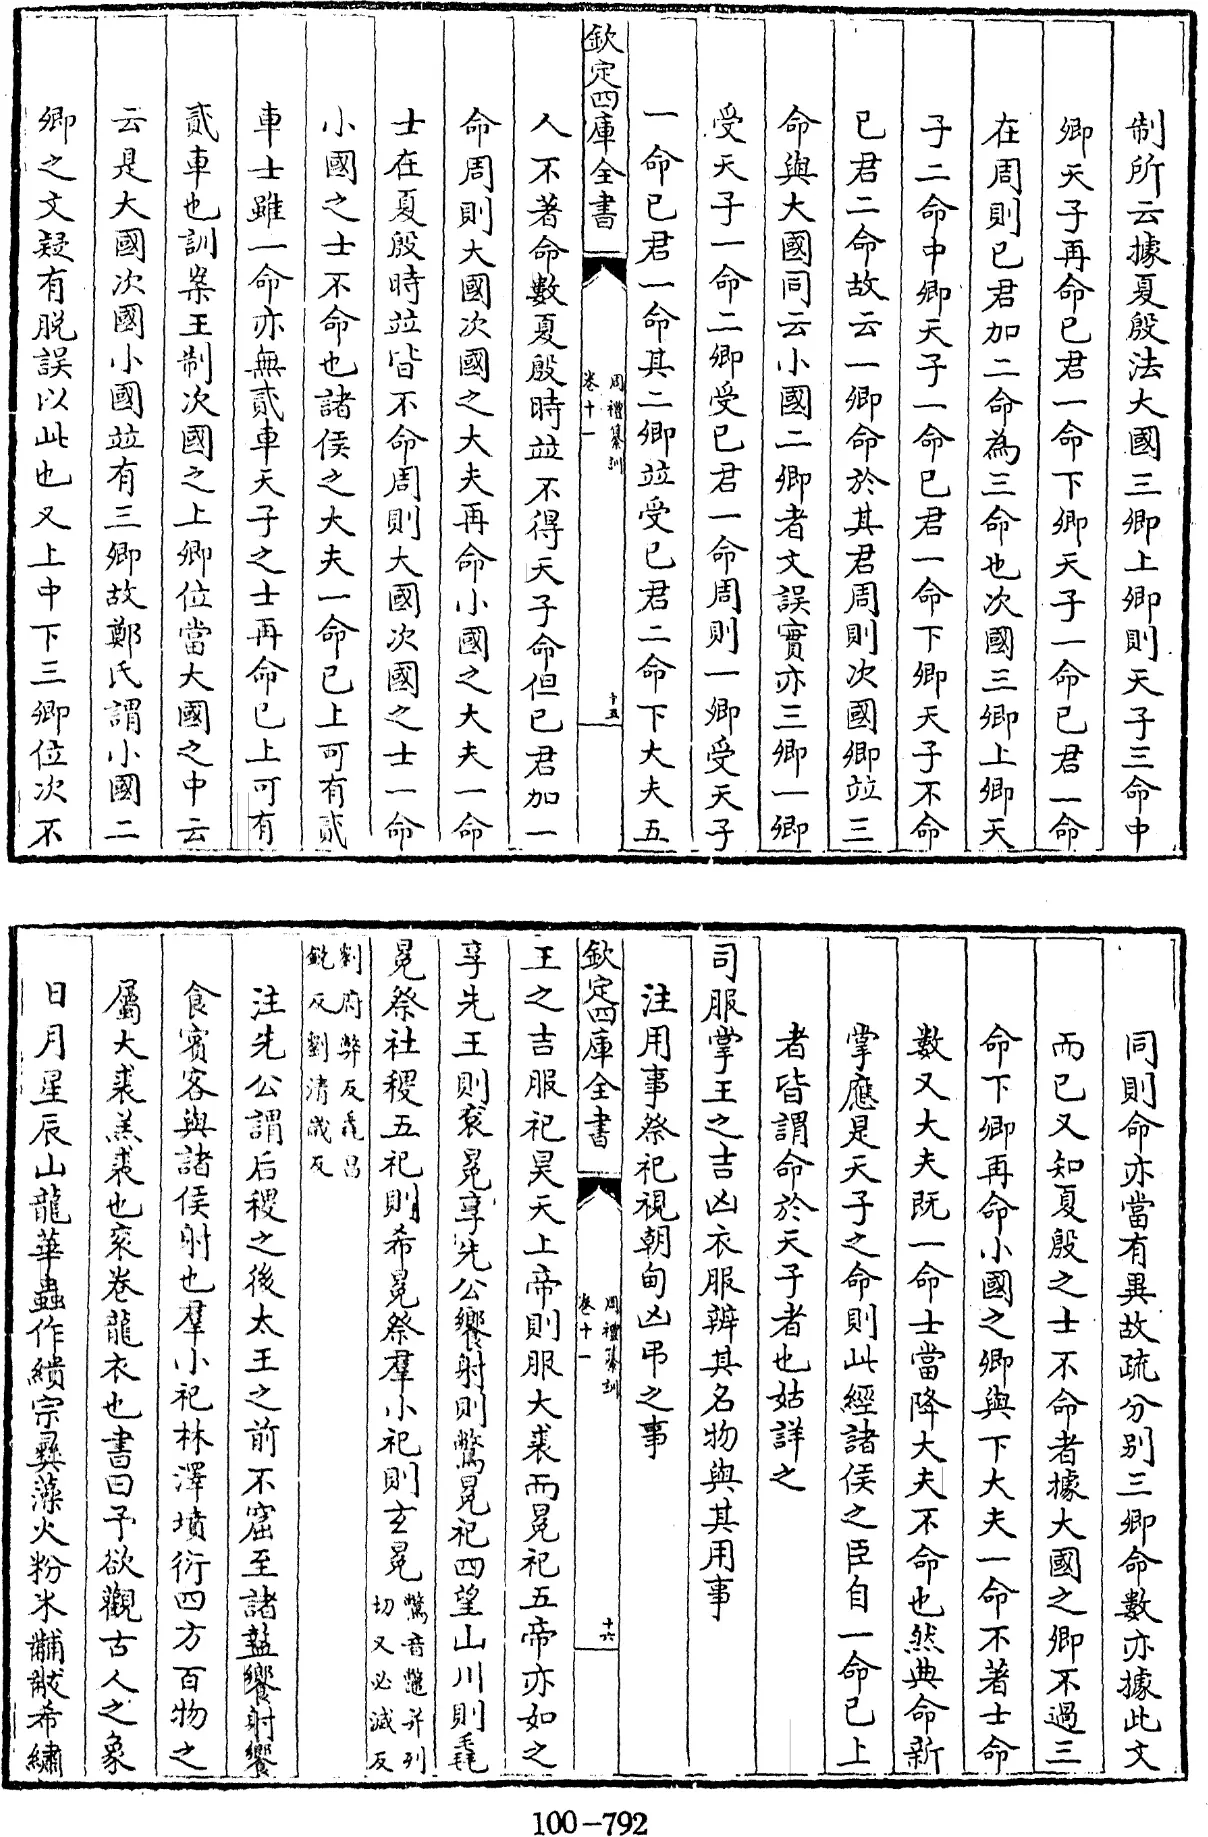 制所云據夏殷法大國三卿上卿則天子三命中
卿天子再命已君一命下卿天子一命已君一命
在周則已君加二命為三命也次國三卿上卿天
子二命中卿天子一命已君一命下卿天子不命
已君二命故云一卿命於其君周則次國卿竝三
命與大國同云小國二卿者文誤實亦三卿一卿
受天子一命二卿受已君一命周則一卿受天子
一命已君一命其二卿竝受已君二命下大夫五
欽定四庫全書
周禮纂訓
卷十一
十五
人不著命數夏殷時竝不得天子命但已君加一
命周則大國次國之大夫再命小國之大夫一命
士在夏殷時竝皆不命周則大國次國之士一命
小國之士不命也諸侯之大夫一命已上可有貳
車士雖一命亦無貳車天子之士再命已上可有
貳車也訓案王制次國之上卿位當大國之中云
云是大國次國小國竝有三卿故鄭氏謂小國二
卿之文疑有脱誤以此也又上中下三卿位次不
同則命亦當有異故疏分别三卿命數亦據此文
而已又知夏殷之士不命者據大國之卿不過三
命下卿再命小國之卿與下大夫一命不著士命
數又大夫既一命士當降大夫不命也然典命新
掌應是天子之命則此經諸侯之臣自一命已上
者皆謂命於天子者也姑詳之
司服掌王之吉凶衣服辨其名物與其用事
注用事祭祀視朝甸凶弔之事
欽定四庫全書
周禮纂訓
卷十一
十六
王之吉服祀昊天上帝則服大裘而冕祀五帝亦如之
享先王則衮冕享先公饗射則鷩冕祀四望山川則毳
冕祭社稷五祀則希冕祭羣小祀則玄冕鷩音鼈并列切又必滅反
劉府弊反毳昌鋭反劉清歲反
注先公謂后稷之後太王之前不窋至諸盩饗射饗
食賓客與諸侯射也羣小祀林澤墳衍四方百物之
屬大裘羔裘也衮卷龍衣也書曰予欲觀古人之象
日月星辰山龍華蟲作繢宗彝藻火粉米黼黻希繡
100-792